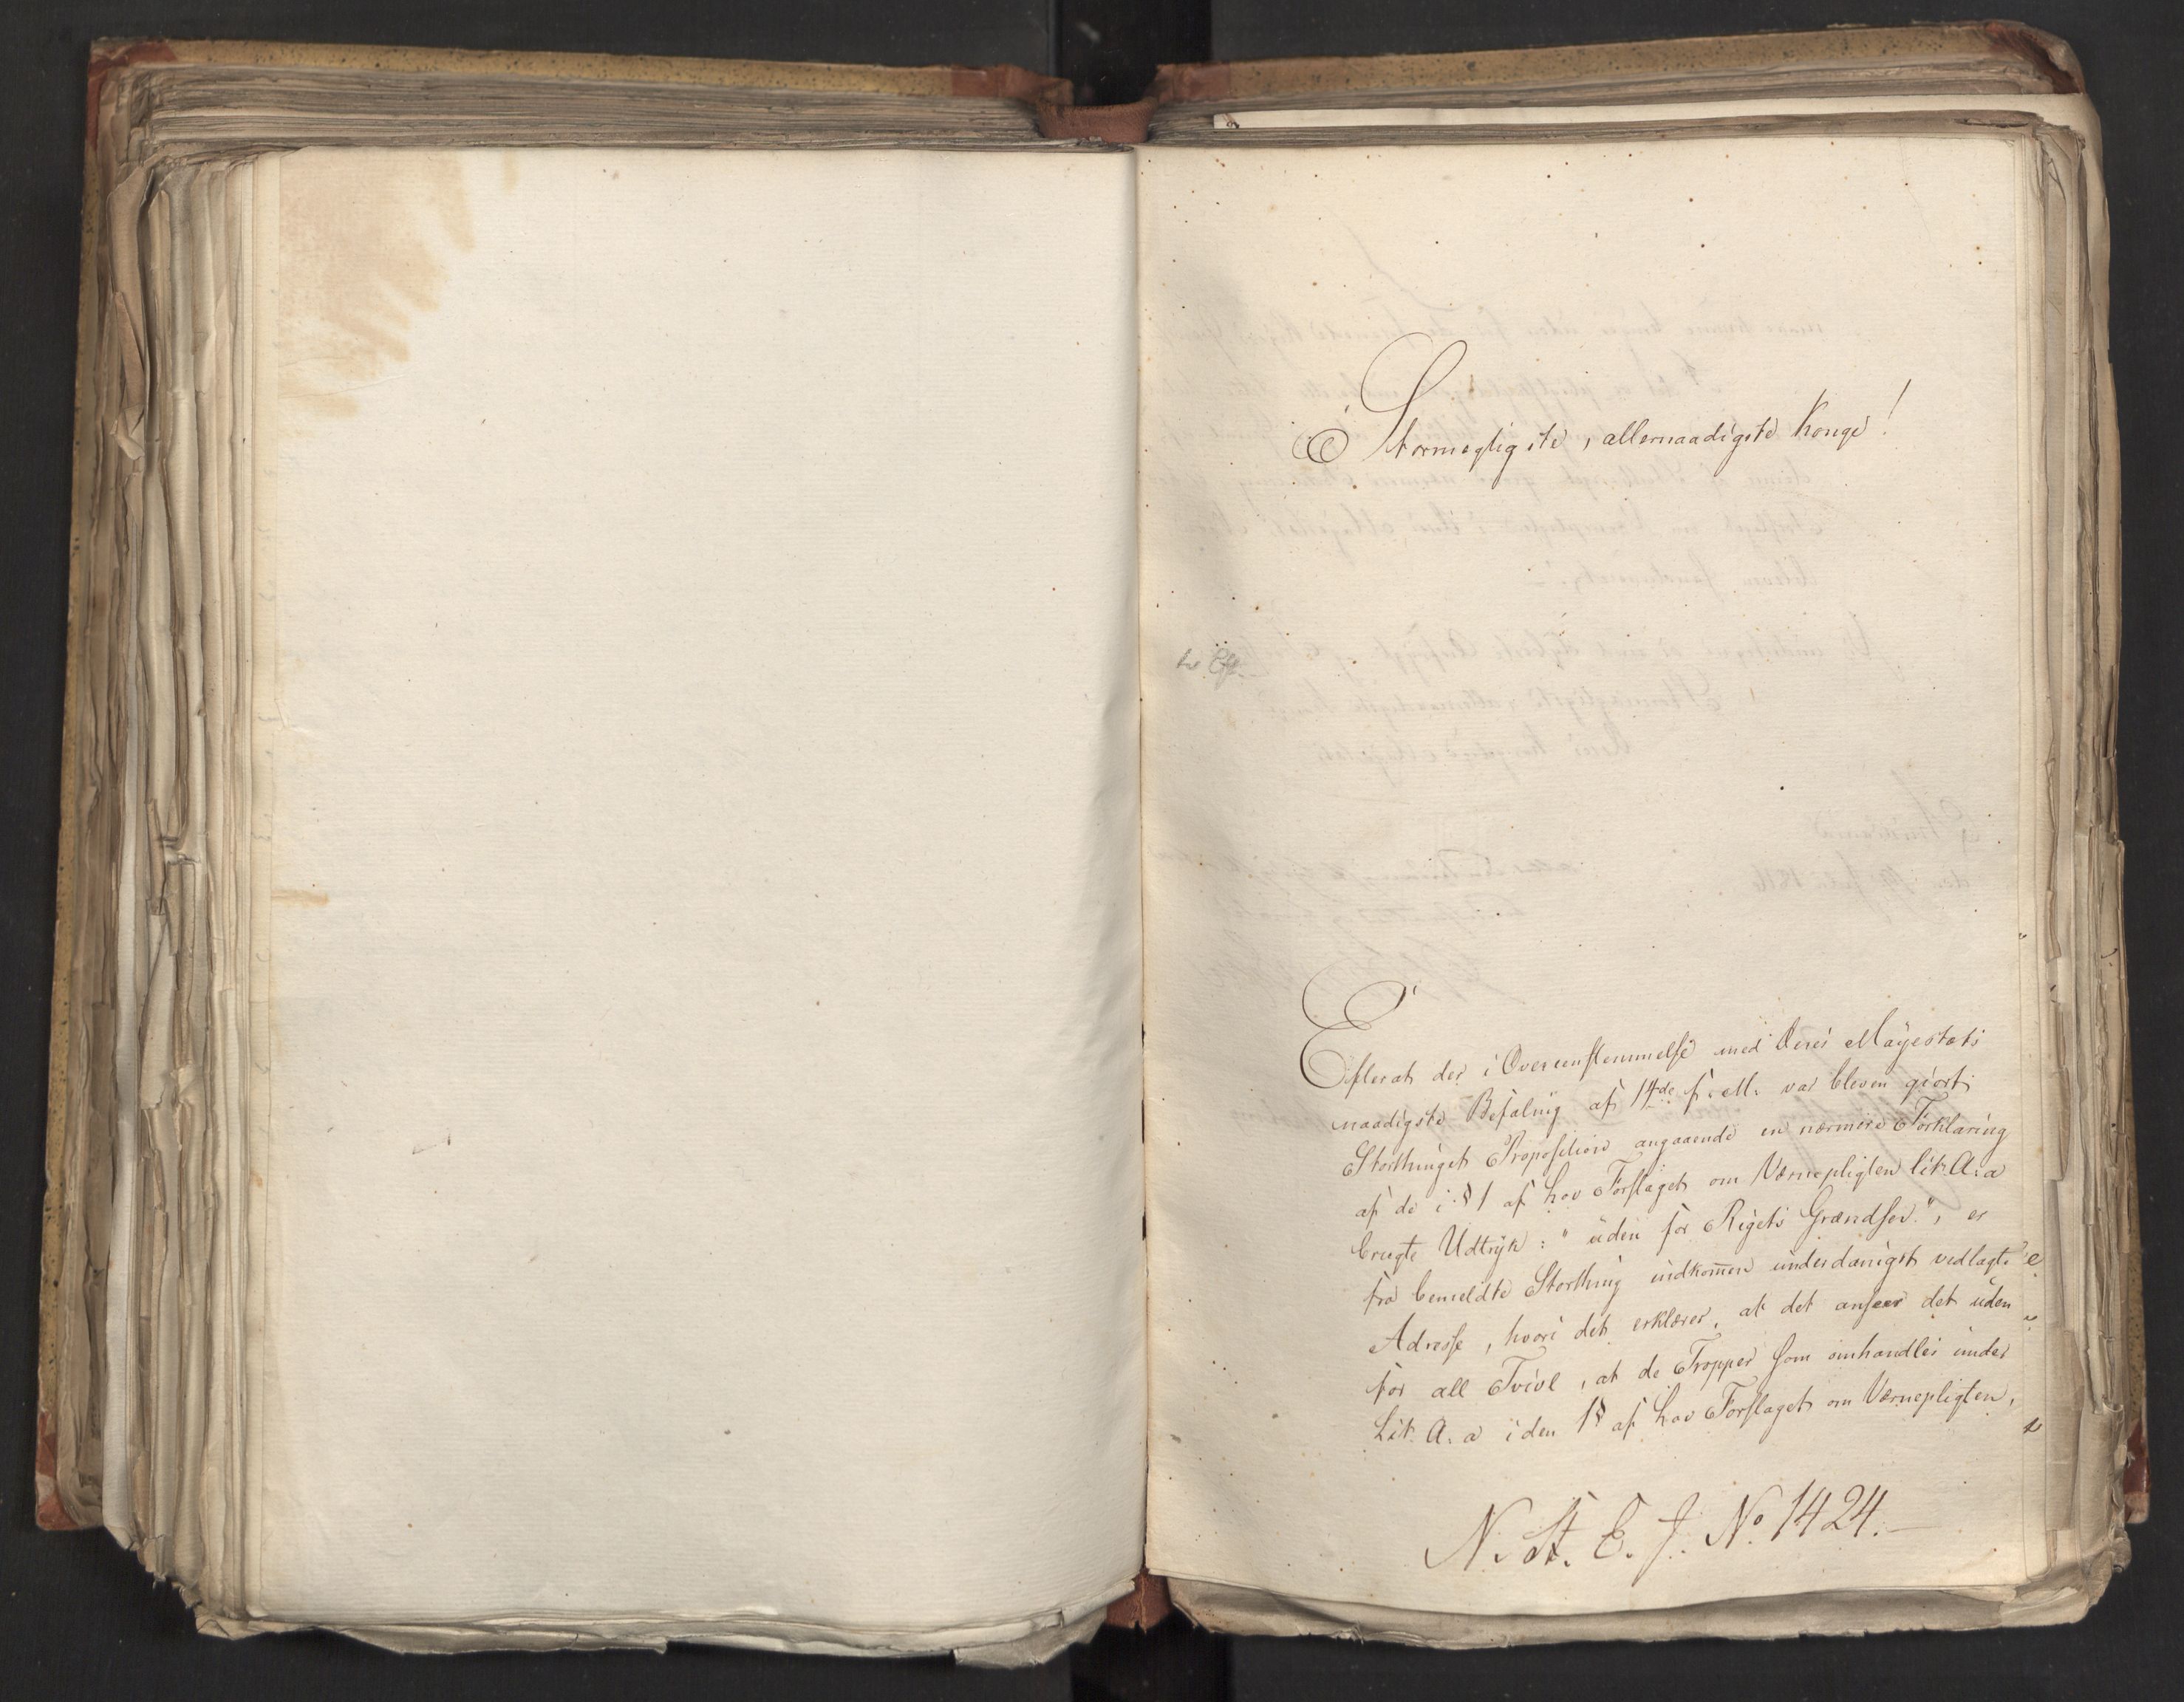 Stormægtigste, allernaadigste Konge!
Efterat der i Overeenstemmelse med Deres Mayestæts
naadigste Befaling af 14de f. M. var bleven giort
Storthinget Proposition angaaende en nærmere Forklaring
af de i § 1 af Lov Forslaget om Værnepligten litr. A. a
brugte Udtryk: "uden for Rigets Grændser", er
fra bemeldte Storthing indkom̄en underdanigst vedlagte
Adresse, hvori det erklærer, at det anseer det uden
for all Tvivl, at de Tropper som omhandles under
Litr. A. a i den 1 § af Lov Forslaget om Værnepligten,
N. St. E. J. No 1424.